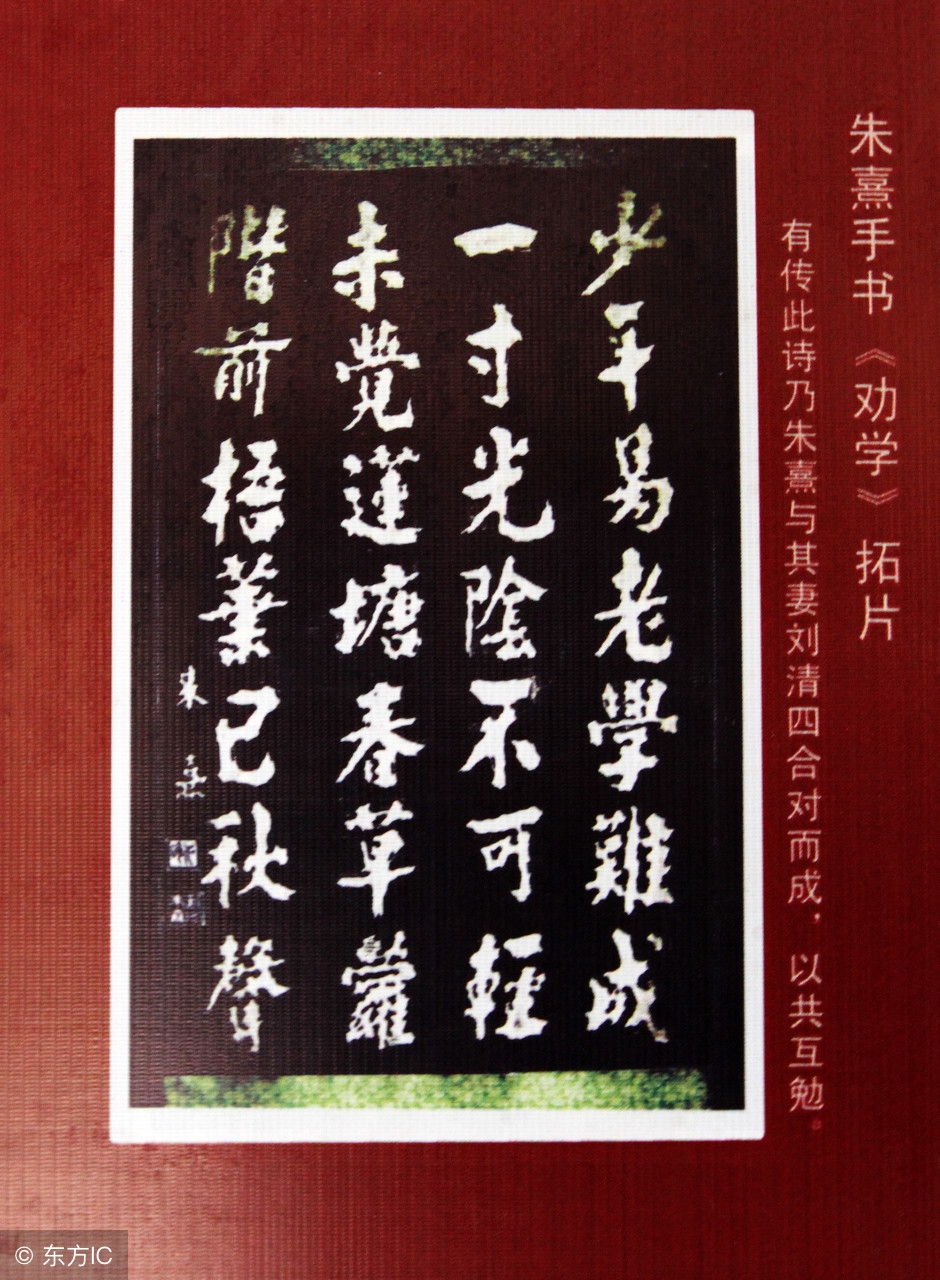 朱熹手书《劝学》拓片
有传此诗乃朱熹与其妻刘清四合对而成，以共互勉。
少年易老學難成
一寸光陰不可輕
未覺蓮塘春草
階前梧葉已秋聲
朱熹
© 东方IC